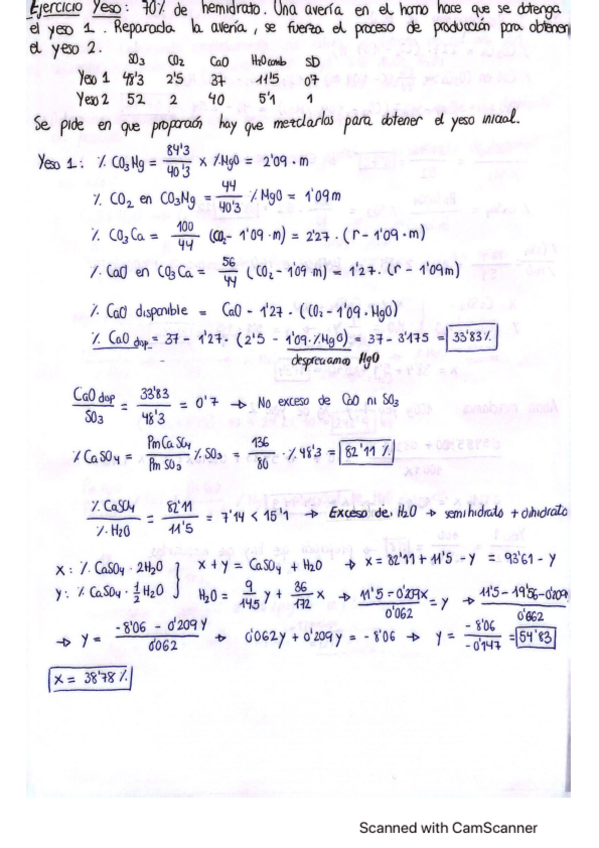 Ejercicio Yeso: 70% de hemidrato. Una avería en el horno hace que se obtenga
el yeso 1. Reparada la avería, se fuerza el proceso de producción para obtener
el yeso 2.
SO3 CO2 CaO H2O comb SD
Yeso 1 48'3 2'5 37 11'5 07
Yeso 2 52 2 40 5'1 1
Se pide en que proporción hay que mezclarlos para obtener el yeso inicial.
Yeso 1: % CO3Mg = 84'3/40'3 x %MgO = 2'09·m
% CO2 en CO3Mg = 44/40'3 %MgO = 1'09m
% CO3Ca = 100/44 (CO2 - 1'09·m) = 2'27·(r - 1'09·m)
%CaO en CO3Ca = 56/44 (CO2 - 1'09·m) = 1'27·(r - 1'09m)
% CaO disponible = CaO - 1'27·(CO2 - 1'09·MgO)
% CaO dop = 37 - 1'27·(2'5 - 1'09·%MgO) = 37 - 3'175 = 33'83%
despreciamos MgO
CaO dop/SO3 = 33'83/48'3 = 0'7 → No exceso de CaO ni SO3
%CaSO4 = PmCaSO4/PmSO3 %SO3 = 136/80 · % 48'3 = 82'11 %
% CaSO4/%H2O = 82'11/11'5 = 7'14 < 15'1 → Exceso de H2O → semihidrato + dihidrato
x: % CaSO4·2H2O } x + y = CaSO4 + H2O → x = 82'11 + 11'5 - y = 93'61 - y
y: % CaSO4·1/2 H2O } H2O = 9/145 y + 36/172 x → 11'5 - 0'209x/0'062 = y → 11'5 - 19'56 - 0'209/0'062
→ y = -8'06 - 0'209y/0'062 → 0'062y + 0'209y = -8'06 → y = -8'06/-0'147 = 54'83
x = 38'78%
Scanned with CamScanner